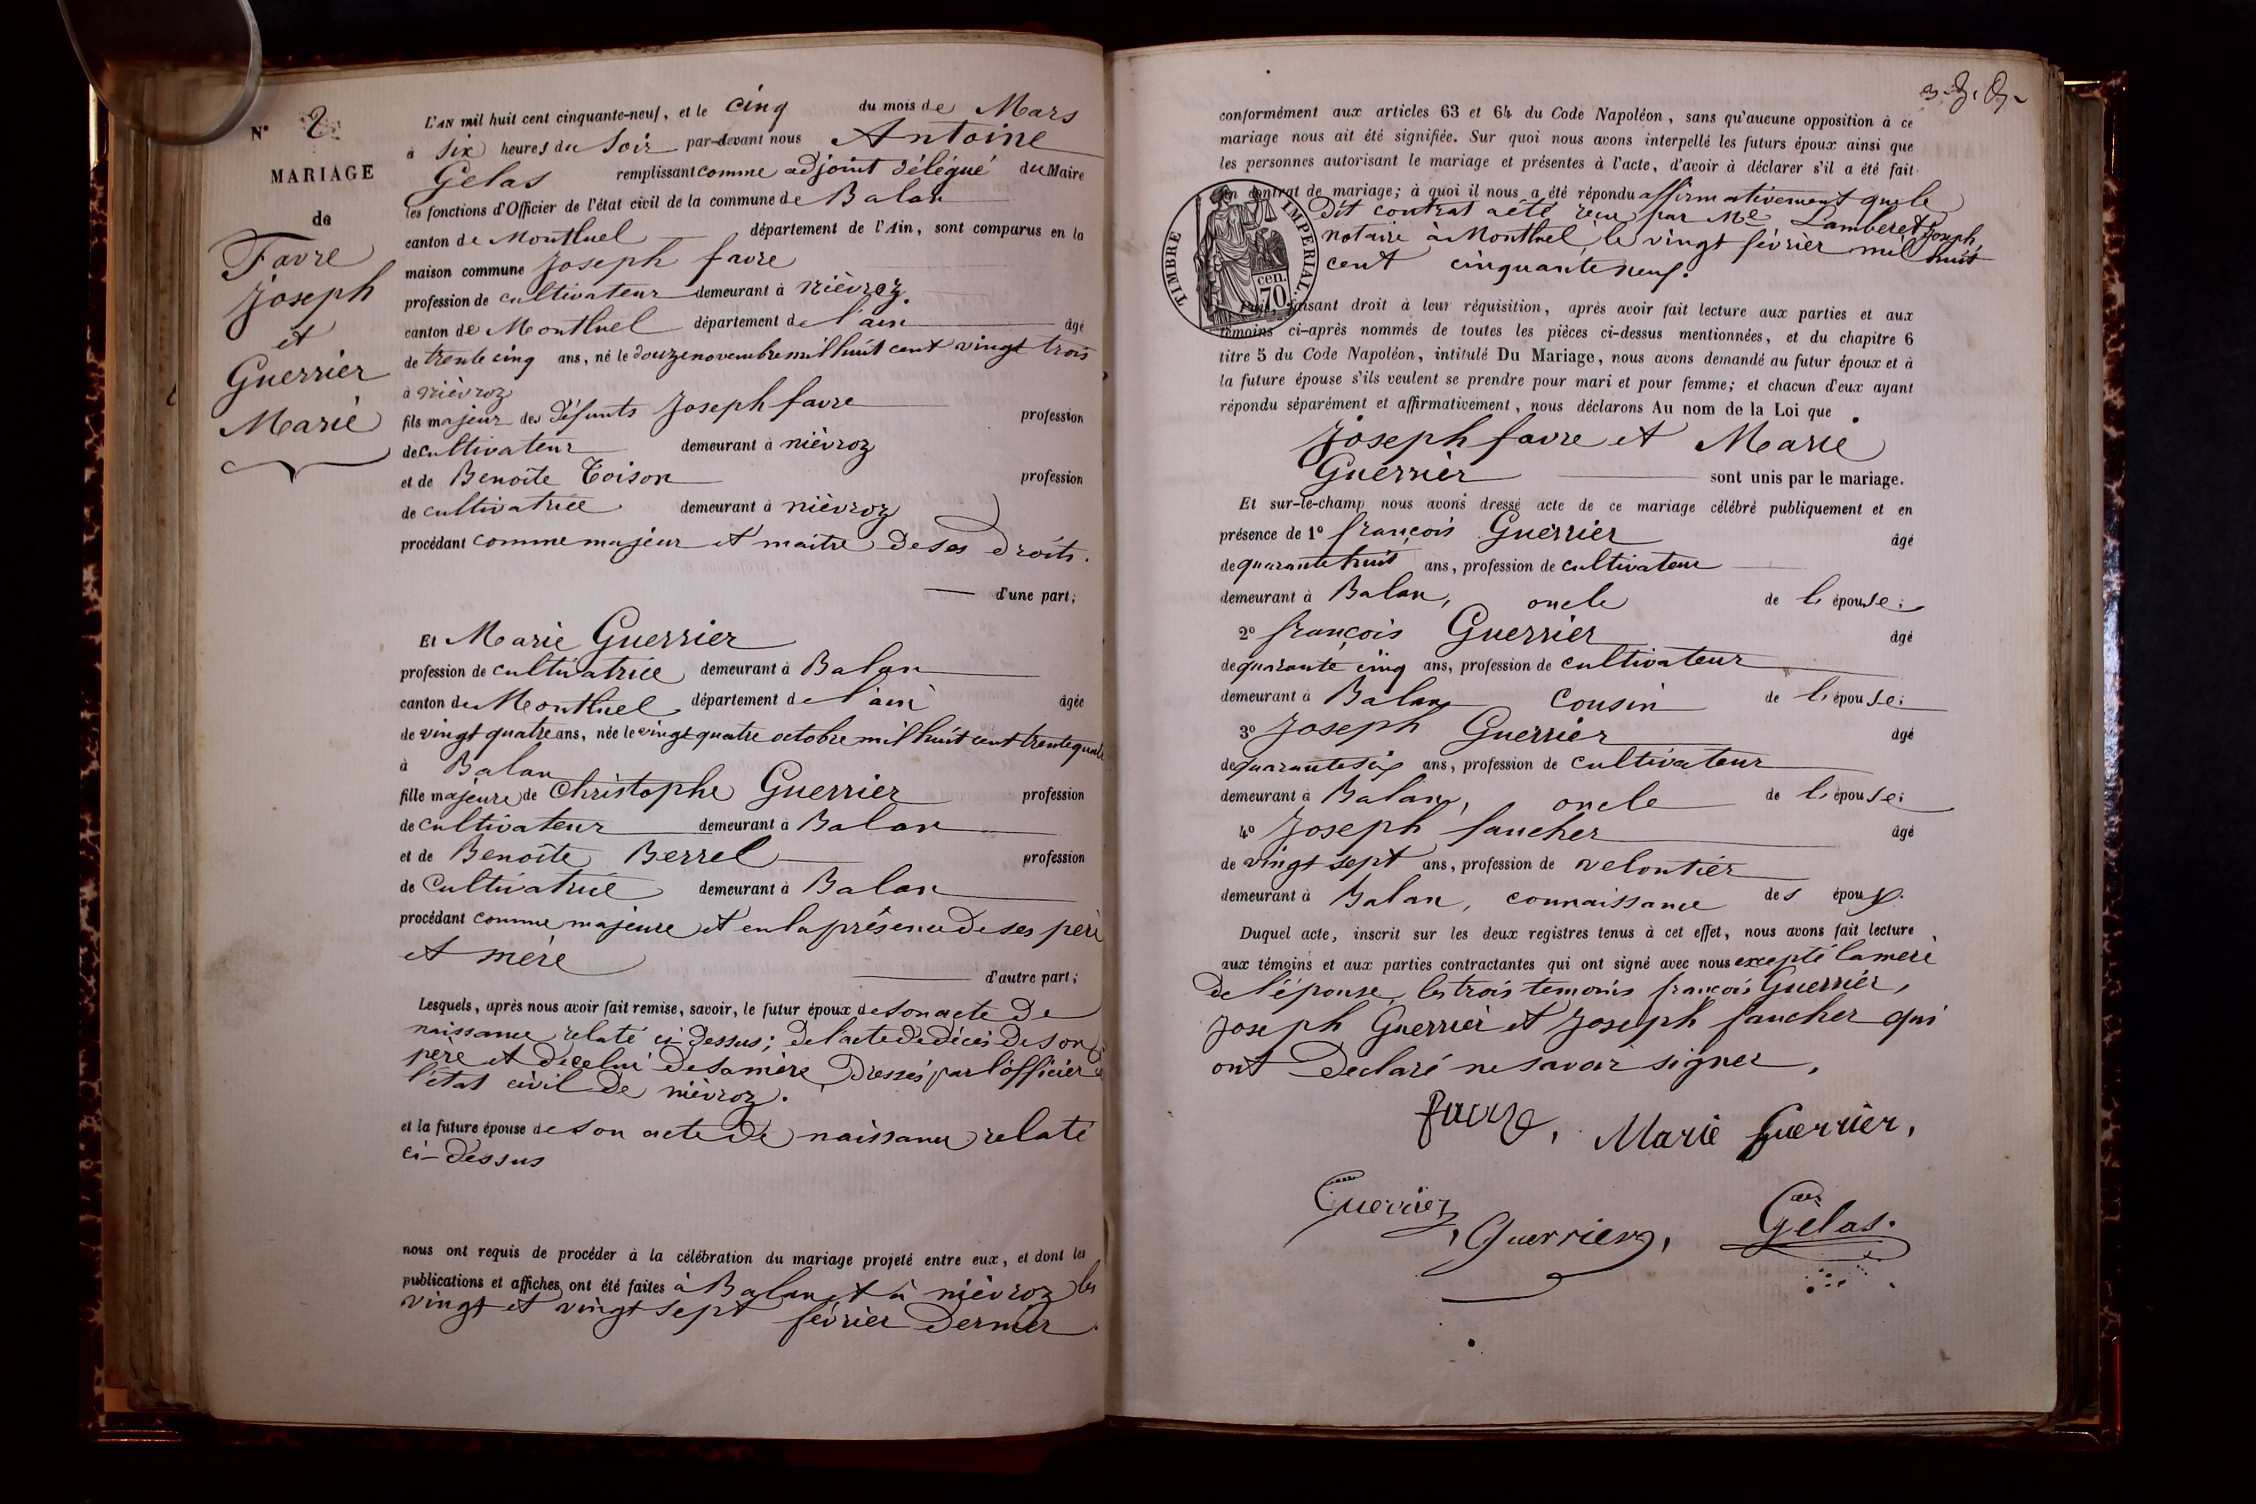 N° 2
MARIAGE
de
Favre
Joseph
et
Guerrier
Marie
L'AN mil huit cent cinquante-neuf, et le cinq du mois de Mars
à six heures du soir par-devant nous Antoine
Gelas remplissant comme adjoint délégué du Maire
les fonctions d'Officier de l'état civil de la commune de Balan
canton de Montluel département de l'Ain, sont comparus en la
maison commune Joseph favre
profession de cultivateur demeurant à nièvroz
canton de Montluel département de l'ain âgé
de trente cinq ans, né le douze novembre mil huit cent vingt trois
à nièvroz
fils majeur des défunts Joseph favre profession
de cultivateur demeurant à nièvroz
et de Benoîte Toison profession
de cultivatrice demeurant à nièvroz
procédant comme majeur et maître de ses droits.
d'une part;
Et Marie Guerrier
profession de cultivatrice demeurant à Balan
canton de Montluel département de l'ain âgée
de vingt quatre ans, née le vingt quatre octobre mil huit cent trente quatre
à Balan
fille majeure de Christophe Guerrier profession
de cultivateur demeurant à Balan
et de Benoîte Berrel profession
de cultivatrice demeurant à Balan
procédant comme majeure et en la présence de ses père
et mère
d'autre part;
Lesquels, après nous avoir fait remise, savoir, le futur époux de son acte de
naissance relaté ci-dessus; de l'acte de décès de son
père et de celui de sa mère dressés par l'officier de
l'état civil de nièvroz.
et la future épouse de son acte de naissance relaté
ci-dessus
nous ont requis de procéder à la célébration du mariage projeté entre eux, et dont les
publications et affiches ont été faites à Balan et à nièvroz les
vingt et vingt sept février dernier
conformément aux articles 63 et 64 du Code Napoléon, sans qu'aucune opposition à ce
mariage nous ait été signifiée. Sur quoi nous avons interpellé les futurs époux ainsi que
les personnes autorisant le mariage et présentes à l'acte, d'avoir à déclarer s'il a été fait
un contrat de mariage; à quoi il nous a été répondu affirmativement que le
dit contrat a été reçu par Me Lamberet Joseph
notaire à Montluel le vingt février mil huit
cent cinquante neuf.
TIMBRE IMPERIAL
70 cen.
Puis, faisant droit à leur réquisition, après avoir fait lecture aux parties et aux
témoins ci-après nommés de toutes les pièces ci-dessus mentionnées, et du chapitre 6
titre 5 du Code Napoléon, intitulé Du Mariage, nous avons demandé au futur époux et à
la future épouse s'ils veulent se prendre pour mari et pour femme; et chacun d'eux ayant
répondu séparément et affirmativement, nous déclarons Au nom de la Loi que
Joseph favre et Marie
Guerrier sont unis par le mariage.
Et sur-le-champ nous avons dressé acte de ce mariage célébré publiquement et en
présence de 1° françois Guerrier âgé
de quarante huit ans, profession de cultivateur
demeurant à Balan, oncle de l'épouse;
2° françois Guerrier âgé
de quarante cinq ans, profession de cultivateur
demeurant à Balan cousin de l'épouse;
3° Joseph Guerrier âgé
de quarante six ans, profession de cultivateur
demeurant à Balan, oncle de l'épouse;
4° Joseph faucher âgé
de vingt sept ans, profession de veloutier
demeurant à Balan, connaissance des époux.
Duquel acte, inscrit sur les deux registres tenus à cet effet, nous avons fait lecture
aux témoins et aux parties contractantes qui ont signé avec nous excepté la mère
de l'épouse, les trois temoins françois Guerrier,
Joseph Guerrier et Joseph faucher qui
ont déclaré ne savoir signer.
favre, Marie Guerrier,
Guerrier, Guerrier, Gelas.